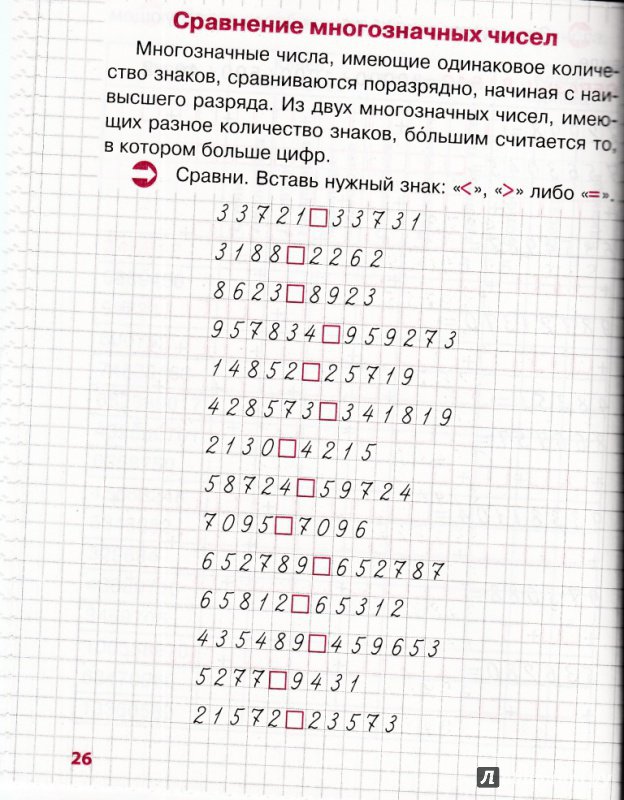 Сравнение многозначных чисел
Многозначные числа, имеющие одинаковое количе-
ство знаков, сравниваются поразрядно, начиная с наи-
высшего разряда. Из двух многозначных чисел, имею-
щих разное количество знаков, бо́льшим считается то,
в котором больше цифр.
Сравни. Вставь нужный знак: «<», «>» либо «=».
33721□33731
3188□2262
8623□8923
957834□959273
14852□25719
428573□341819
2130□4215
58724□59724
7095□7096
652789□652787
65812□65312
435489□459653
5277□9431
21572□23573
26
Л